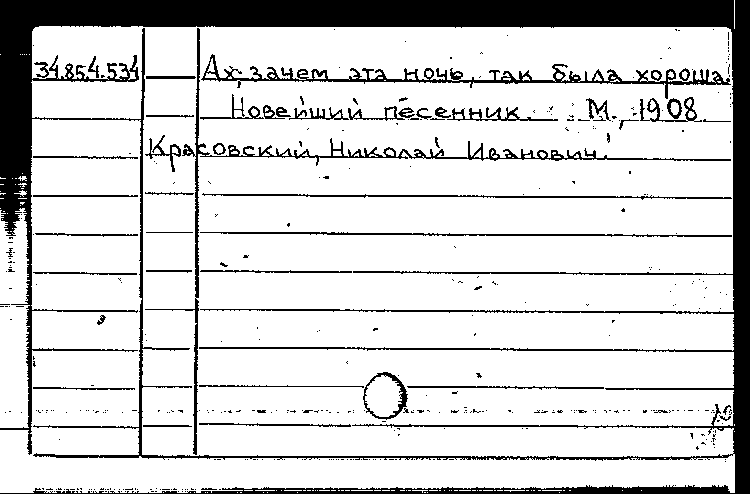 34.854.534 Ах, зачем эта ночь, так была хороша.
Новейший песенник. М., 1908.
Красовский, Николай Иванович.